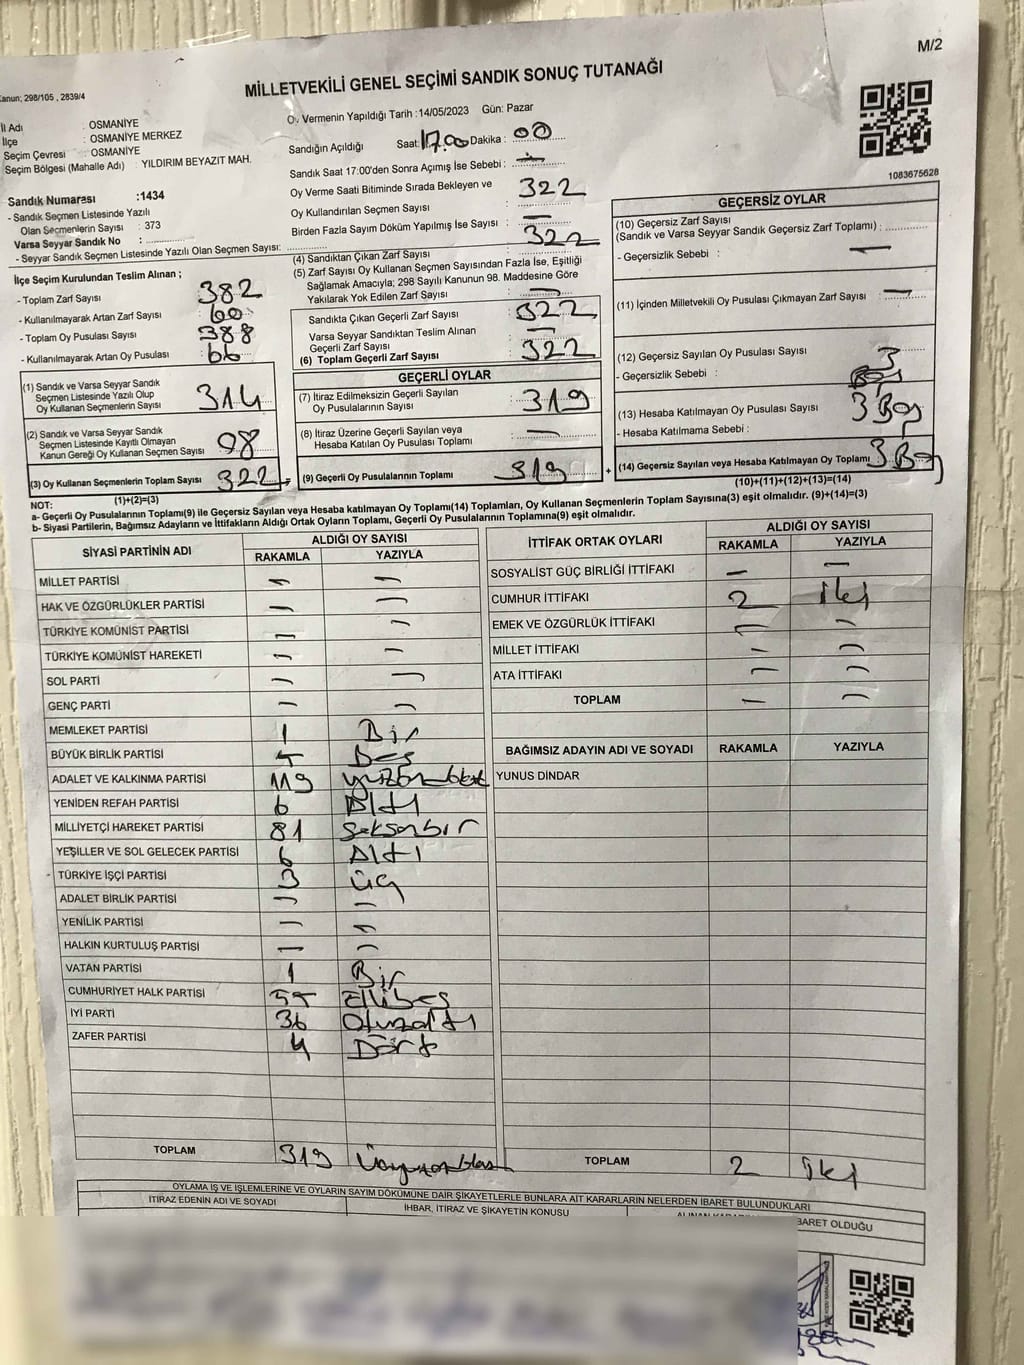 M/2
Kanun; 298/105 , 2839/4
MİLLETVEKİLİ GENEL SEÇİMİ SANDIK SONUÇ TUTANAĞI
İl Adı : OSMANİYE
İlçe : OSMANİYE MERKEZ
Seçim Çevresi : OSMANİYE
Seçim Bölgesi (Mahalle Adı) : YILDIRIM BEYAZIT MAH.
Oy Vermenin Yapıldığı Tarih :14/05/2023 Gün: Pazar
Sandığın Açıldığı Saat: 17.00 Dakika : 00
Sandık Saat 17:00'den Sonra Açımış İse Sebebi : —
Oy Verme Saati Bitiminde Sırada Bekleyen ve
Oy Kullandırılan Seçmen Sayısı : 322
Birden Fazla Sayım Döküm Yapılmış İse Sayısı : —
1083675628
Sandık Numarası :1434
- Sandık Seçmen Listesinde Yazılı
Olan Seçmenlerin Sayısı : 373
Varsa Seyyar Sandık No :
- Seyyar Sandık Seçmen Listesinde Yazılı Olan Seçmen Sayısı:
İlçe Seçim Kurulundan Teslim Alınan ;
- Toplam Zarf Sayısı : 382
- Kullanılmayarak Artan Zarf Sayısı : 60
- Toplam Oy Pusulası Sayısı : 388
- Kullanılmayarak Artan Oy Pusulası : 66
(1) Sandık ve Varsa Seyyar Sandık
Seçmen Listesinde Yazılı Olup
Oy Kullanan Seçmenlerin Sayısı : 314
(2) Sandık ve Varsa Seyyar Sandık
Seçmen Listesinde Kayıtlı Olmayan
Kanun Gereği Oy Kullanan Seçmen Sayısı : 08
(3) Oy Kullanan Seçmenlerin Toplam Sayısı : 322
(1)+(2)=(3)
(4) Sandıktan Çıkan Zarf Sayısı : 322
(5) Zarf Sayısı Oy Kullanan Seçmen Sayısından Fazla İse, Eşitliği
Sağlamak Amacıyla; 298 Sayılı Kanunun 98. Maddesine Göre
Yakılarak Yok Edilen Zarf Sayısı : —
Sandıkta Çıkan Geçerli Zarf Sayısı : 322
Varsa Seyyar Sandıktan Teslim Alınan
Geçerli Zarf Sayısı : —
(6) Toplam Geçerli Zarf Sayısı : 322
GEÇERLİ OYLAR
(7) İtiraz Edilmeksizin Geçerli Sayılan
Oy Pusulalarının Sayısı : 319
(8) İtiraz Üzerine Geçerli Sayılan veya
Hesaba Katılan Oy Pusulası Toplamı : —
(9) Geçerli Oy Pusulalarının Toplamı : 319 +
GEÇERSİZ OYLAR
(10) Geçersiz Zarf Sayısı
(Sandık ve Varsa Seyyar Sandık Geçersiz Zarf Toplamı) :
- Geçersizlik Sebebi : —
(11) İçinden Milletvekili Oy Pusulası Çıkmayan Zarf Sayısı : —
(12) Geçersiz Sayılan Oy Pusulası Sayısı : 3
- Geçersizlik Sebebi :
(13) Hesaba Katılmayan Oy Pusulası Sayısı : 3 Boş
- Hesaba Katılmama Sebebi :
(14) Geçersiz Sayılan veya Hesaba Katılmayan Oy Toplamı : 3 Boş
(10)+(11)+(12)+(13)=(14)
NOT:
a- Geçerli Oy Pusulaları Toplamı(9) ile Geçersiz Sayılan veya Hesaba katılmayan Oy Toplamı(14) Toplamları, Oy Kullanan Seçmenlerin Toplam Sayısına(3) eşit olmalıdır. (9)+(14)=(3)
b- Siyasi Partilerin, Bağımsız Adayların ve İttifakların Aldığı Ortak Oyların Toplamı, Geçerli Oy Pusulalarının Toplamına(9) eşit olmalıdır.
SİYASİ PARTİNİN ADI ALDIĞI OY SAYISI
RAKAMLA YAZIYLA
MİLLET PARTİSİ — —
HAK VE ÖZGÜRLÜKLER PARTİSİ — —
TÜRKİYE KOMÜNİST PARTİSİ — —
TÜRKİYE KOMÜNİST HAREKETİ — —
SOL PARTİ — —
GENÇ PARTİ — —
MEMLEKET PARTİSİ 1 Bir
BÜYÜK BİRLİK PARTİSİ 5 Beş
ADALET VE KALKINMA PARTİSİ 119
YENİDEN REFAH PARTİSİ 6 Altı
MİLLİYETÇİ HAREKET PARTİSİ 81 Seksenbir
YEŞİLLER VE SOL GELECEK PARTİSİ 6 Altı
TÜRKİYE İŞÇİ PARTİSİ 3 Üç
ADALET BİRLİK PARTİSİ — —
YENİLİK PARTİSİ — —
HALKIN KURTULUŞ PARTİSİ — —
VATAN PARTİSİ 1 Bir
CUMHURİYET HALK PARTİSİ 55 Ellibeş
İYİ PARTİ 36 Otuzaltı
ZAFER PARTİSİ 4 Dört
TOPLAM 319
İTTİFAK ORTAK OYLARI ALDIĞI OY SAYISI
RAKAMLA YAZIYLA
SOSYALİST GÜÇ BİRLİĞİ İTTİFAKI — —
CUMHUR İTTİFAKI 2 iki
EMEK VE ÖZGÜRLÜK İTTİFAKI — —
MİLLET İTTİFAKI — —
ATA İTTİFAKI — —
TOPLAM — —
BAĞIMSIZ ADAYIN ADI VE SOYADI RAKAMLA YAZIYLA
YUNUS DİNDAR
TOPLAM 2 iki
OYLAMA İŞ VE İŞLEMLERİNE VE OYLARIN SAYIM DÖKÜMÜNE DAİR ŞİKAYETLERLE BUNLARA AİT KARARLARIN NELERDEN İBARET BULUNDUKLARI
İTİRAZ EDENİN ADI VE SOYADI
İHBAR, İTİRAZ VE ŞİKAYETİN KONUSU
BARET OLDUĞU